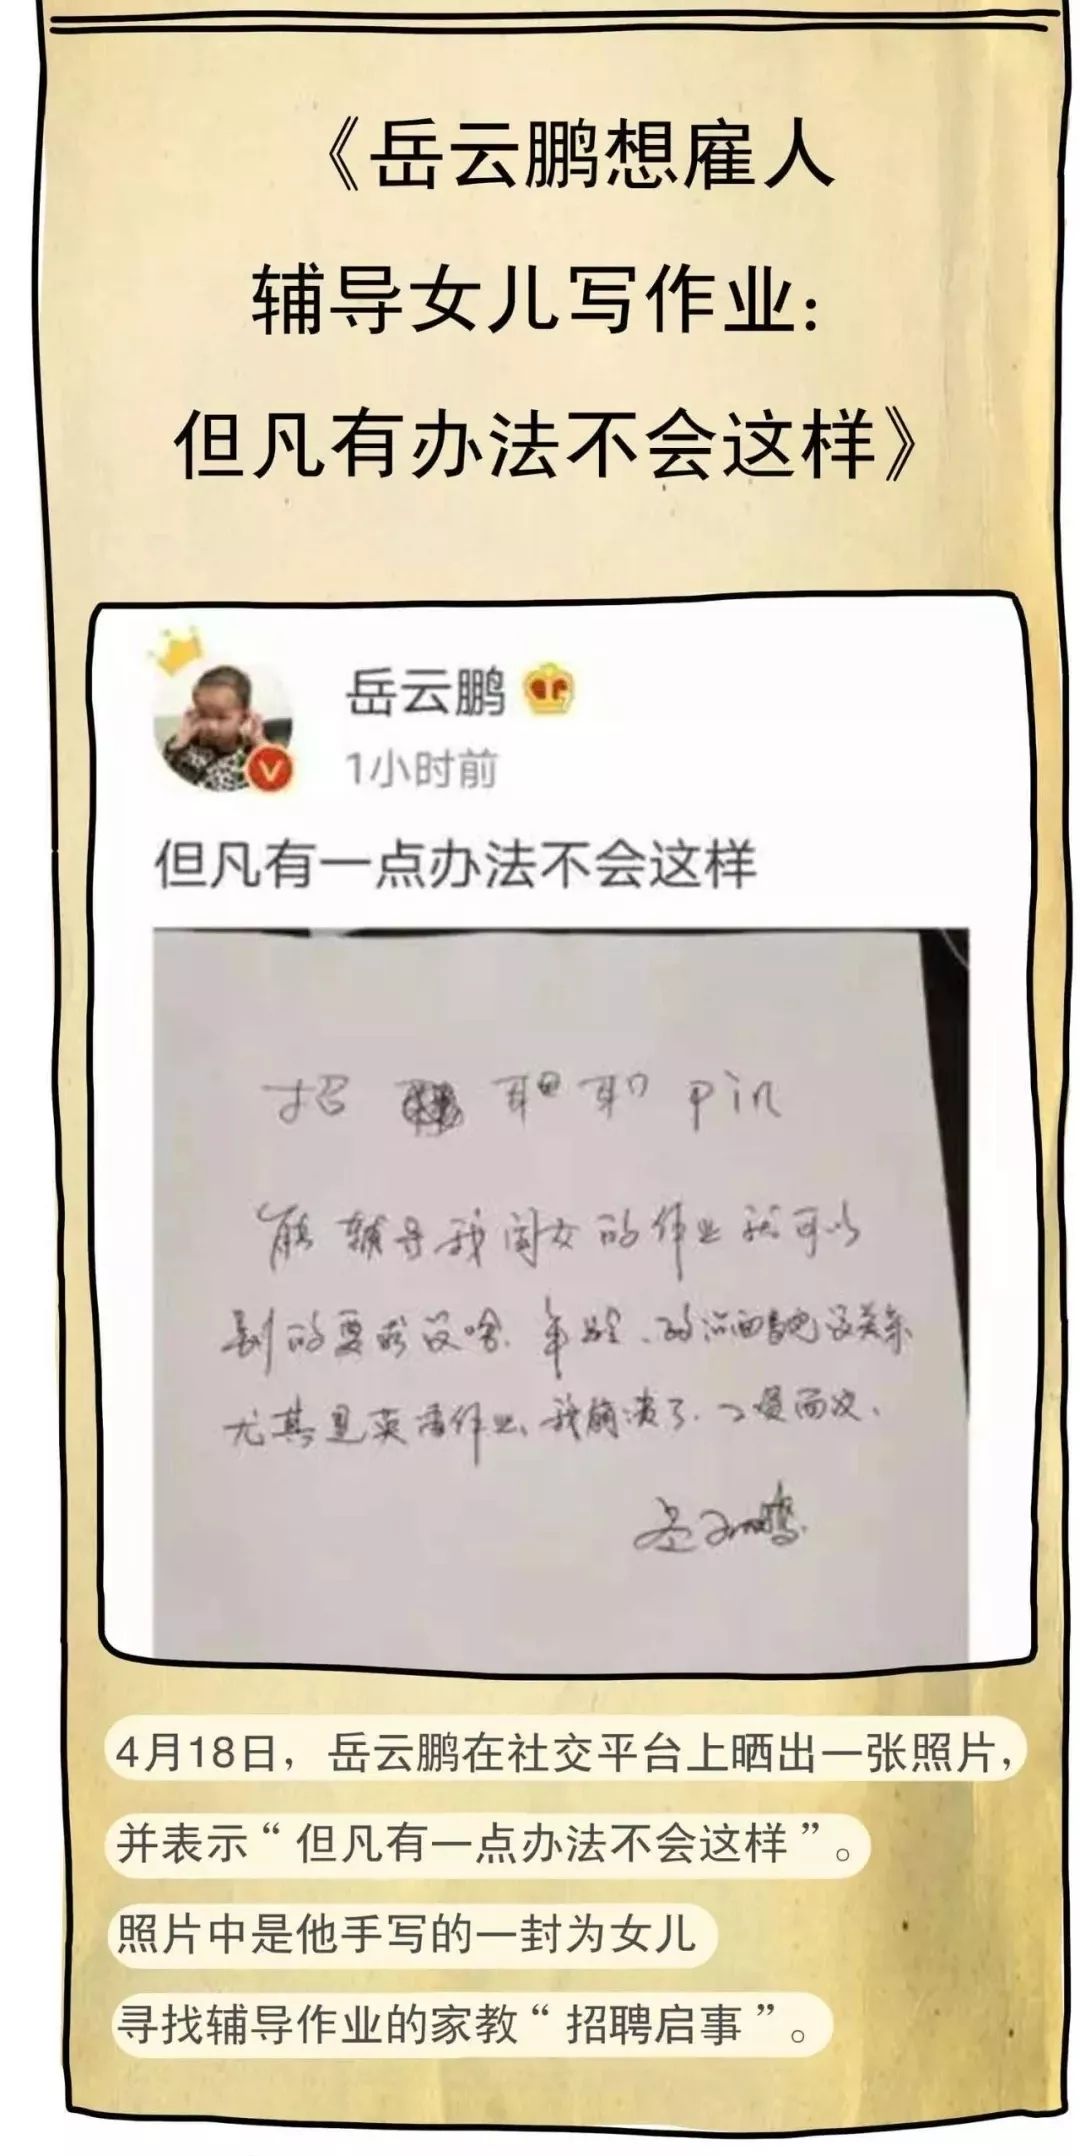 《岳云鹏想雇人
辅导女儿写作业：
但凡有办法不会这样》
岳云鹏
1小时前
但凡有一点办法不会这样
招 职职 pin
能辅导我闺女的作业就可以
别的要求没啥.年龄、
尤其是英语作业、我崩溃了.
岳云鹏
4月18日，岳云鹏在社交平台上晒出一张照片，
并表示“但凡有一点办法不会这样”。
照片中是他手写的一封为女儿
寻找辅导作业的家教“招聘启事”。